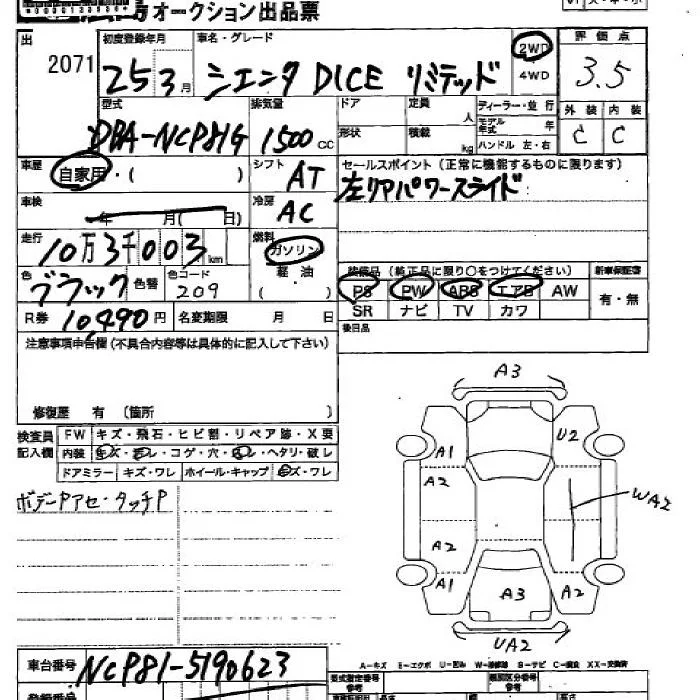 オークション出品票
出
2071
初度登録年月
25 3月
車名・グレード
シエンタ DICE リミテッド
2WD
4WD
評価点
3.5
型式
DBA-NCP81G
排気量
1500 CC
ドア
形状
定員
人
積載
kg
ディーラー・並行
モデル年式
年
ハンドル 左・右
外装
内装
C
C
車歴
自家用・( )
シフト
AT
セールスポイント(正常に機能するものに限ります)
左リアパワースライド
車検
年 月( 日)
冷房
AC
走行
10万3千003km
燃料
ガソリン
軽・油
( )
色
ブラック
色替
色コード
209
装備品(純正品に限り○をつけてください)
新車保証書
PS PW ABS エアB AW
SR ナビ TV カワ
有・無
R券
10,490円
名変期限 月 日
後日品
注意事項申告欄(不具合内容等は具体的に記入して下さい)
修復歴 有 (箇所 )
検査員
記入欄
FW キズ・飛石・ヒビ割・リペア跡・X要
内装 キズ・ ・コゲ・穴・ ・ヘタリ・破レ
ドアミラー キズ・ワレ ホイール・キャップ キズ・ワレ
ボデーPアセ・タッチP
A3
A1
U2
A2
WA2
A2
A1
A3
A2
UA2
A-キズ E-エクボ U-凹ミ S-サビ XX-交換済
車台番号
NCP81-5190623
型式指定番号
類別区分番号
参考
長さ
登録番号